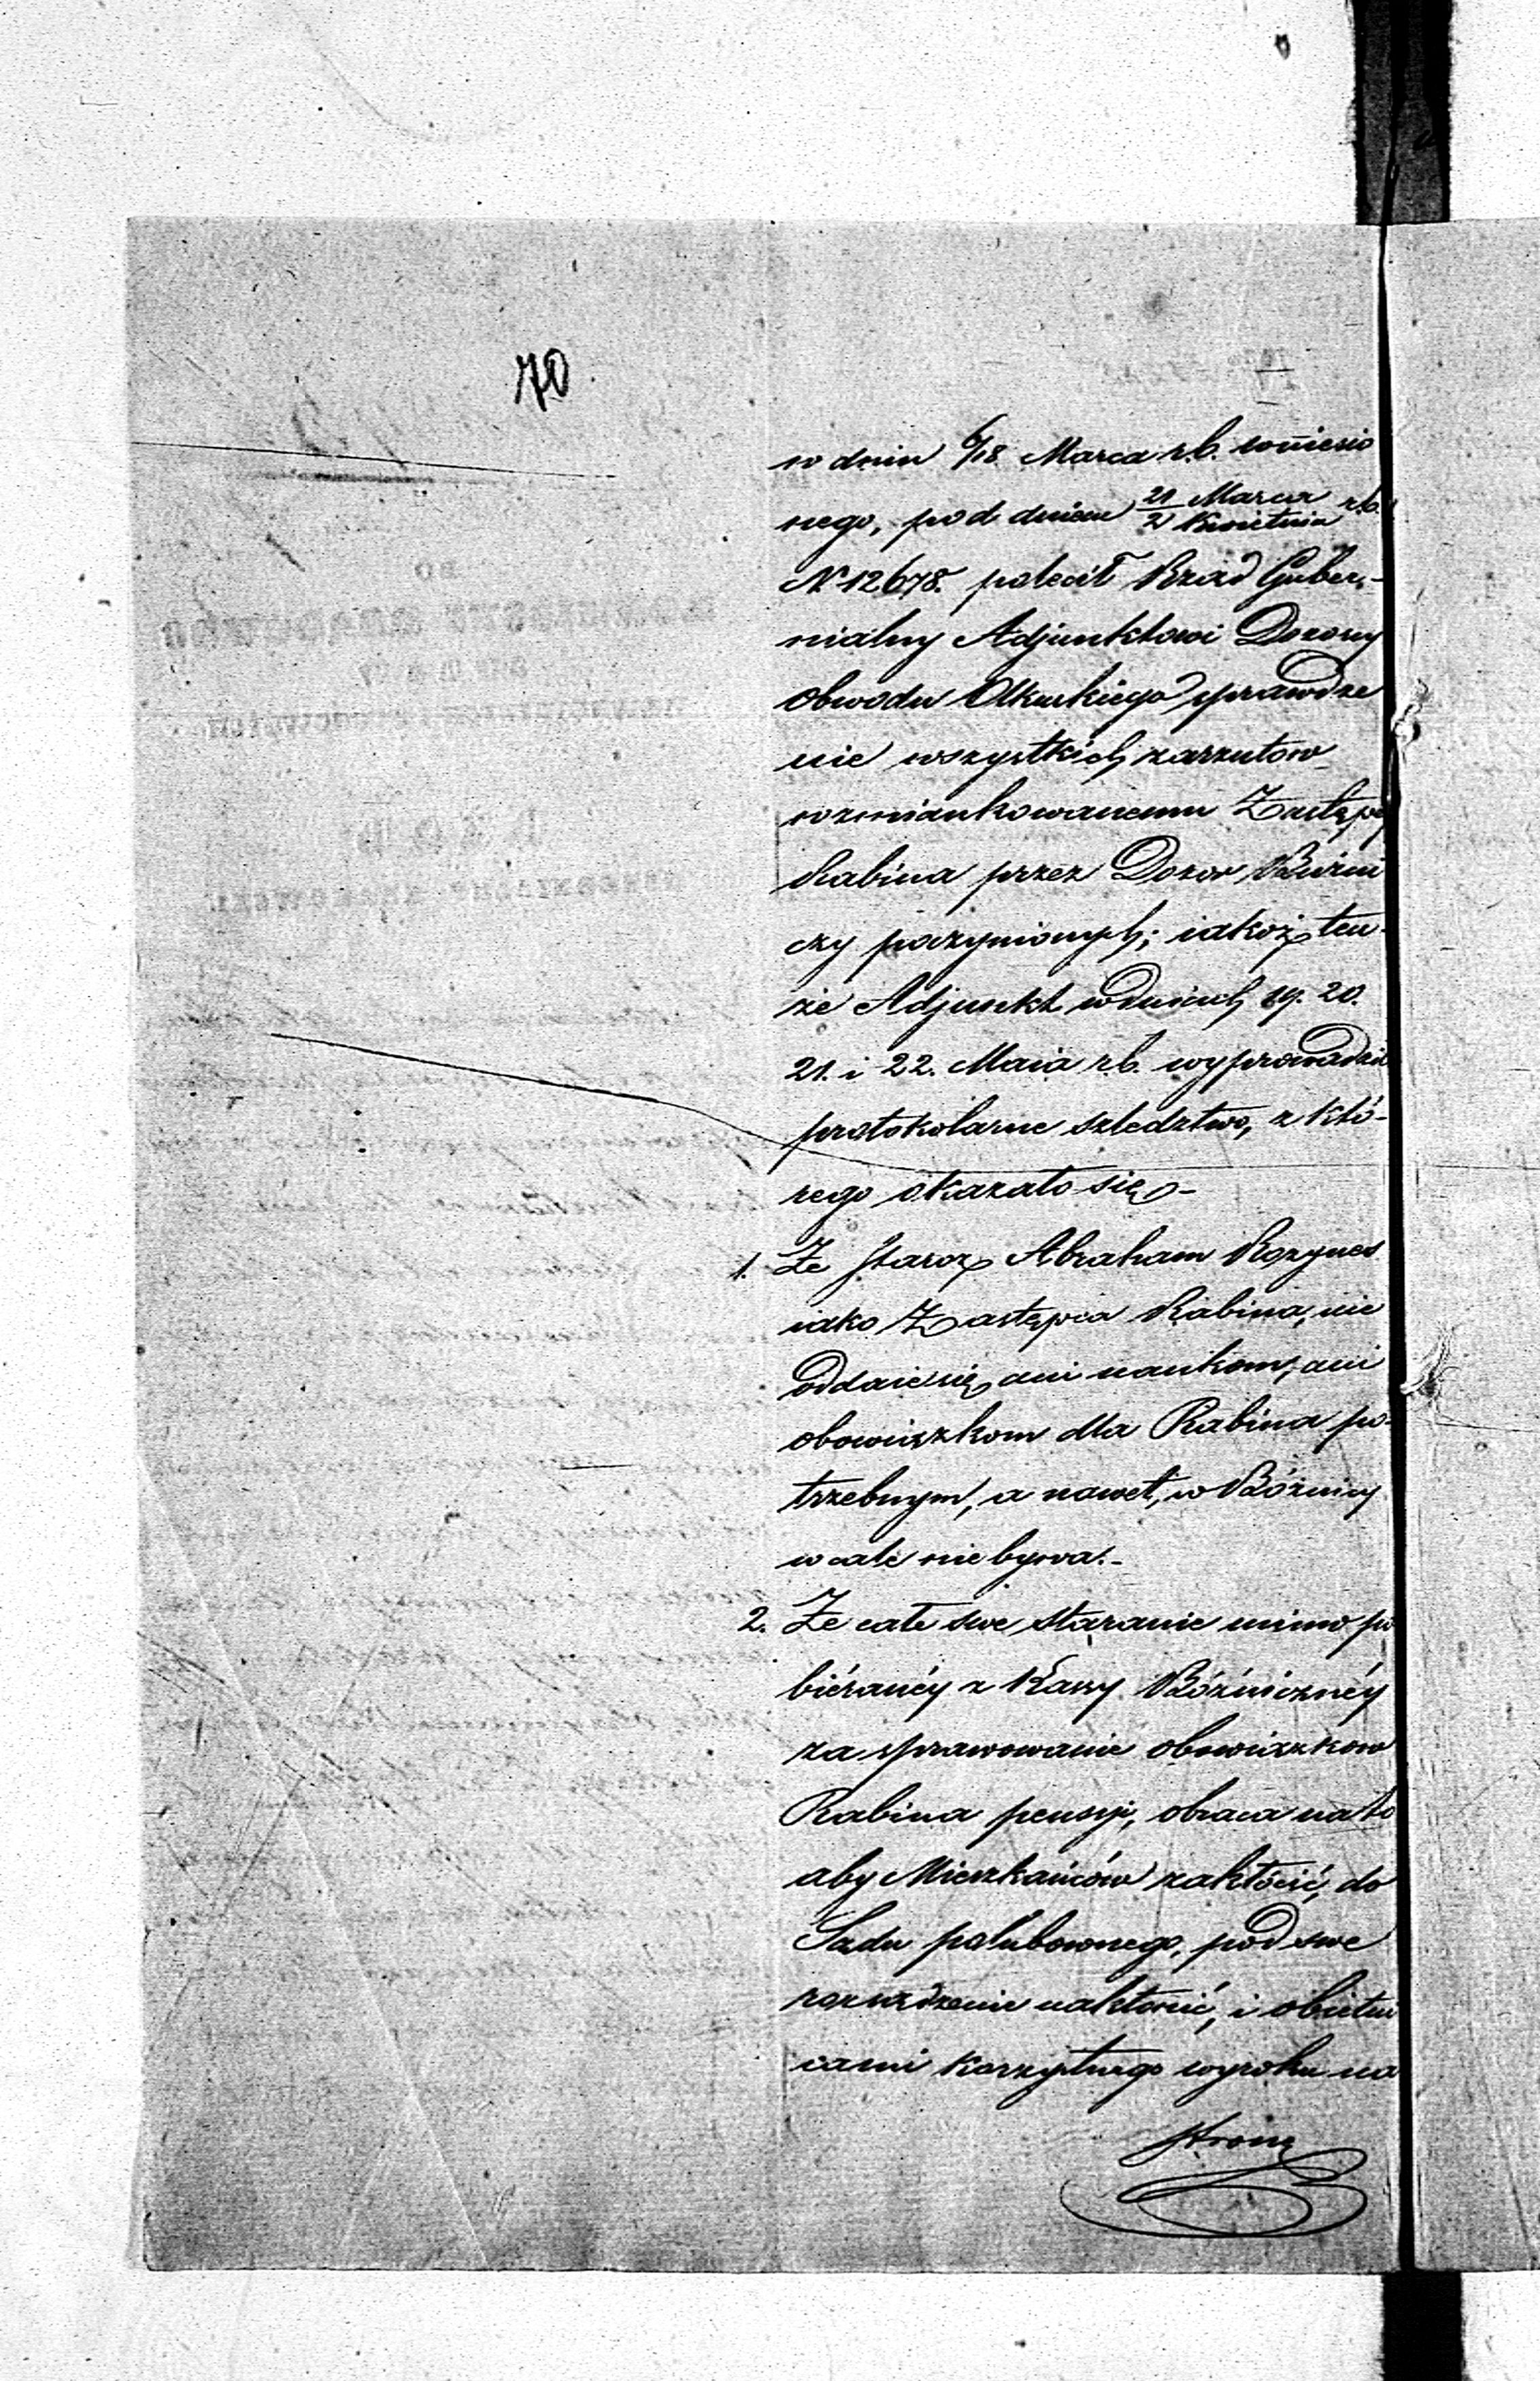 70
w dniu 6/18 Marca r.b. wniesio
nego, pod dniem 21 Marca / 2 Kwietnia r.b.
N. 12678. polecił Rząd Guber,-
nialny Adjunktowi Dozoru
Obwodu Olkuskiego sprawdze
nie wszystkich zarzutow
wzmiankowanemu Zastępcy
Rabina przez Dozor Bóżni
czy poczynionych; iakoż ten-
że Adjunkt w dniach 19. 20.
21. i 22. Maia r.b. wyprowadził
protokolarne szledztwo, z któ-
rego okazało się-
1. Że Staroz Abraham Rozynes
iako Zastępca Rabina, nie
oddaie się ani naukom, ani
obowiązkom dla Rabina po-
trzebnym, a nawet, w Bóżnicy
wcale nie bywa.-
2. Że całe swe staranie mimo po
biéranéy z Kassy Bóżniczney
za sprawowanie obowiązkow
Rabina pensyi, obraca na to
aby Mieszkańców zakłócić, do
Sądu polubownego, pod swe
rozsądzenie nakłonić, i obietni
cami korzystnego wyroku na
stronę